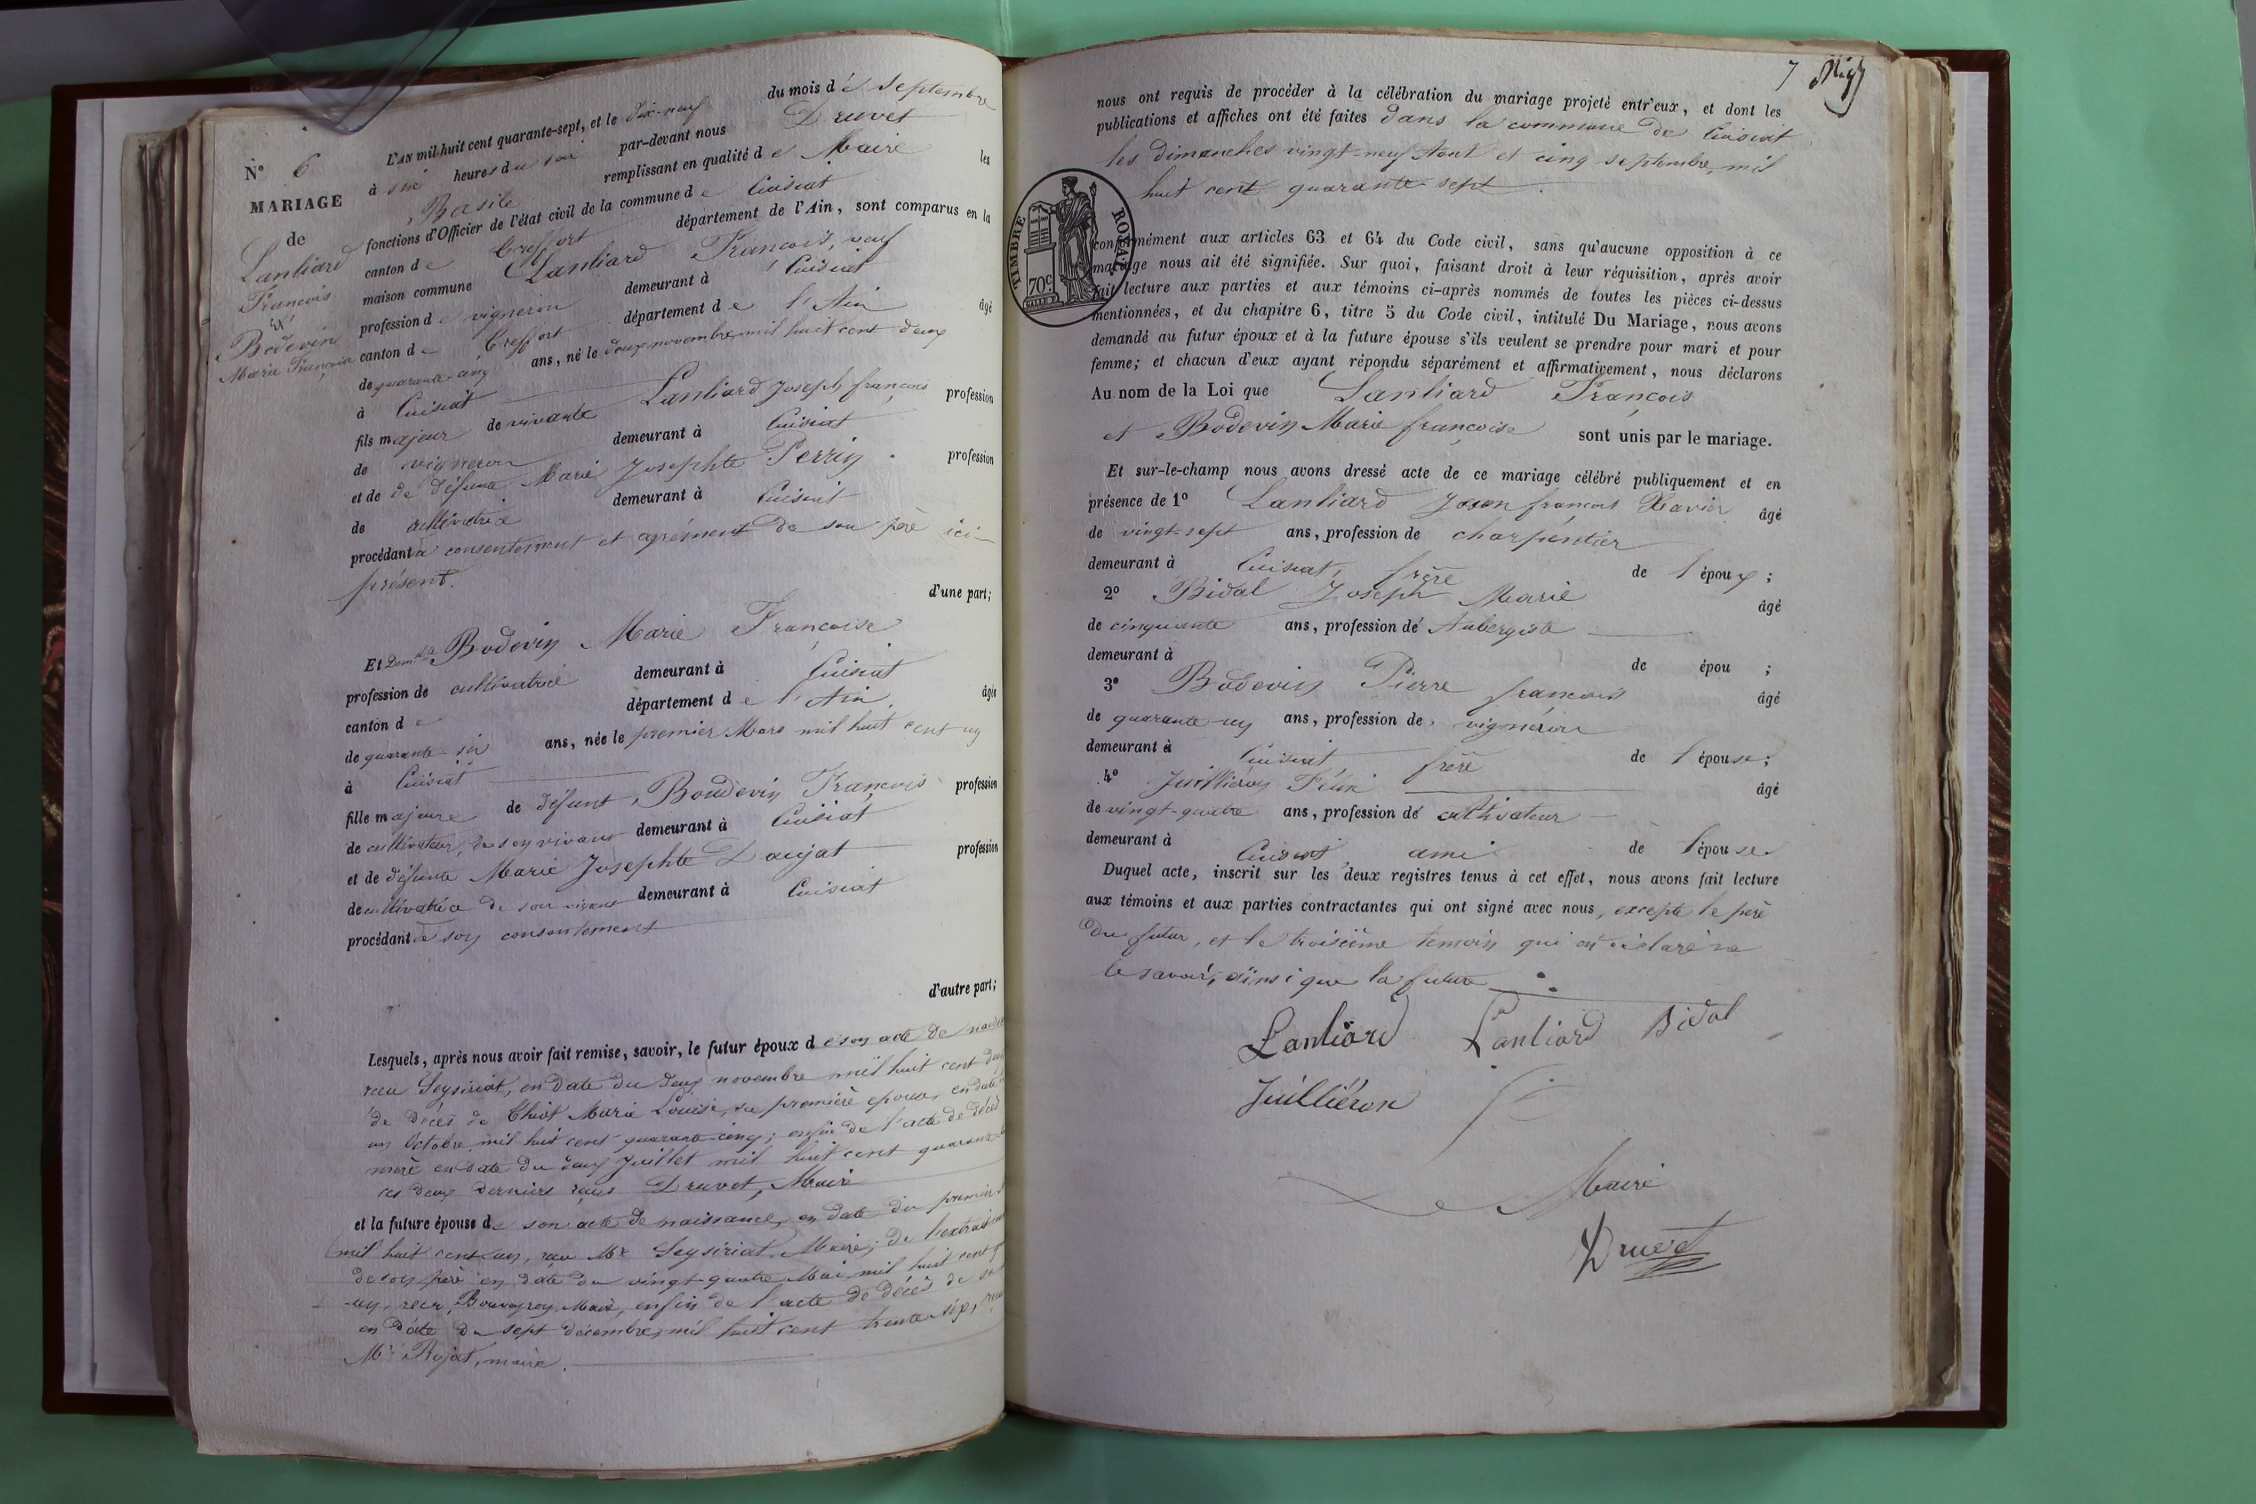 N° 6
MARIAGE
de
Lanliard
François
&
Bodevin
Marie Françoise
L'AN mil huit cent quarante-sept, et le dix-neuf du mois de septembre
à six heures du soir par-devant nous Druvet
Basile remplissant en qualité de Maire les
fonctions d'Officier de l'état civil de la commune de Cuisiat
canton de Treffort département de l'Ain, sont comparus en la
maison commune Lanliard François, veuf
profession de vigneron demeurant à Cuisiat
canton de Treffort département de l'Ain âgé
de quarante cinq ans, né le deux novembre mil huit cent deux
à Cuisiat
fils majeur de vivante Lanliard Joseph françois profession
de vigneron demeurant à Cuisiat
et de de défunte Marie Josephte Perrin profession
de cultivatrice demeurant à Cuisiat
procédant à consentement et agrément de son père ici
présent.
d'une part;
Et Dem.lle Bodevin Marie Françoise
profession de cultivatrice demeurant à Cuisiat
canton de département de l'Ain âgée
de quarante-six ans, née le premier Mars mil huit cent un
à Cuisiat
fille majeure de défunt Boudevin François profession
de cultivateur, de son vivant demeurant à Cuisiat
et de défunte Marie Josephte Daujat profession
de cultivatrice de son vivant demeurant à Cuisiat
procédant de son consentement
d'autre part;
Lesquels, après nous avoir fait remise, savoir, le futur époux de son acte de
reçu Seysiriat, en date du deux novembre mil huit cent
de décès de Marie Louise, sa première épouse, en date
un Octobre mil huit cent quarante cinq; enfin de l'acte de décès
mère en date du deux Juillet mil huit cent
ces deux derniers reçus Druvet, Maire
et la future épouse de son acte de naissance, en date du premier
mil huit cent un, reçu Mr Seysiriat Maire; de l'extrait
de son père en date du vingt-quatre Mai mil huit cent
un, reçu, Bouveyron Maire, enfin de l'acte de décès de
en date du sept décembre, mil huit cent trente six,
Mr Rojat, maire.
7
nous ont requis de procéder à la célébration du mariage projeté entr'eux, et dont les
publications et affiches ont été faites dans la commune de Cuisiat
les dimanches vingt-neuf Aout et cinq septembre, mil
huit cent quarante sept.
TIMBRE ROYAL
70c
conformément aux articles 63 et 64 du Code civil, sans qu'aucune opposition à ce
mariage nous ait été signifiée. Sur quoi, faisant droit à leur réquisition, après avoir
fait lecture aux parties et aux témoins ci-après nommés de toutes les pièces ci-dessus
mentionnées, et du chapitre 6, titre 5 du Code civil, intitulé Du Mariage, nous avons
demandé au futur époux et à la future épouse s'ils veulent se prendre pour mari et pour
femme; et chacun d'eux ayant répondu séparément et affirmativement, nous déclarons
Au nom de la Loi que Lanliard François
et Bodevin Marie françoise sont unis par le mariage.
Et sur-le-champ nous avons dressé acte de ce mariage célébré publiquement et en
présence de 1° Lanliard Jean françois Xavier âgé
de vingt-sept ans, profession de charpentier
demeurant à Cuisiat, frère de l'époux;
2° Bidal Joseph Marie âgé
de cinquante ans, profession de Aubergiste
demeurant à de épou ;
3° Bodevin Pierre françois âgé
de quarante-un ans, profession de vigneron
demeurant à Cuisiat, frère de l'épouse;
4° Juilliéron Félix âgé
de vingt-quatre ans, profession de cultivateur
demeurant à Cuisiat, ami de l'épouse
Duquel acte, inscrit sur les deux registres tenus à cet effet, nous avons fait lecture
aux témoins et aux parties contractantes qui ont signé avec nous, excepté le père
du futur, et le troisième temoin qui on déclaré ne
le savoir, ainsi que la future
Lanliard Lanliard Bidal
Juilliéron
Maire
Druvet